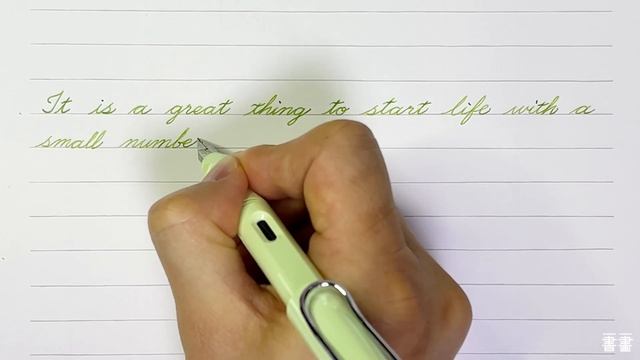 It is a great thing to start life with a
small numbe
書畫